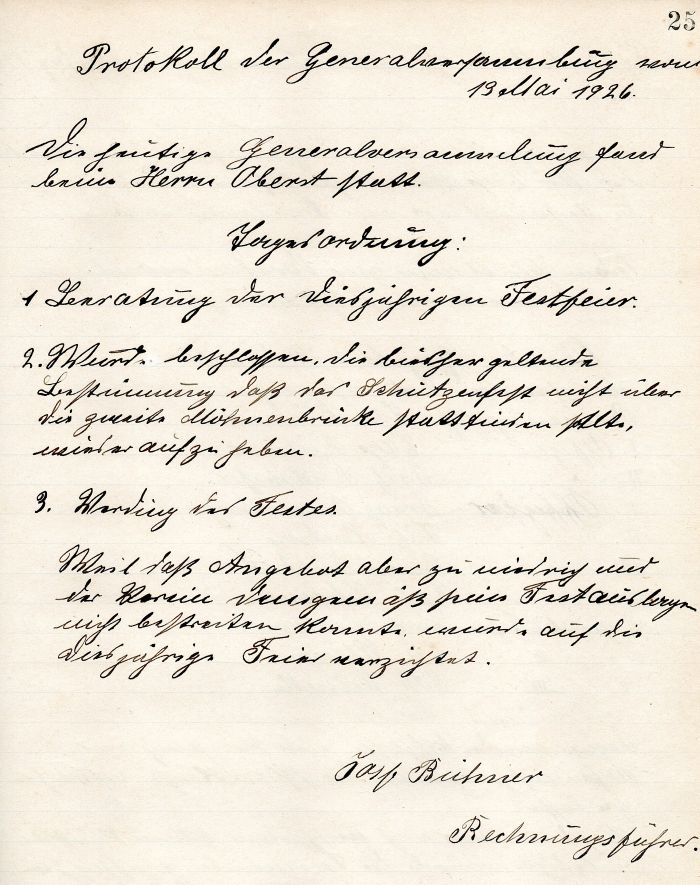 25
Protokoll der Generalversammlung vom
13 Mai 1926.
Die heutige Generalversammlung fand
beim Herrn Oberst statt.
Tagesordnung:
1 Beratung der diesjährigen Festfeier.
2. Wurde beschlossen, die bisher geltende
Bestimmung daß das Schützenfest nicht über
die zweite Möhnenbrücke stattfinden sollte,
wieder aufzuheben.
3. Verding des Festes.
Weil daß Angebot aber zu niedrig und
der Verein demgemäß seine Festauslagen
nicht bestreiten konnte, wurde auf die
diesjährige Feier verzichtet.
Josf Bühner
Rechnungsführer.